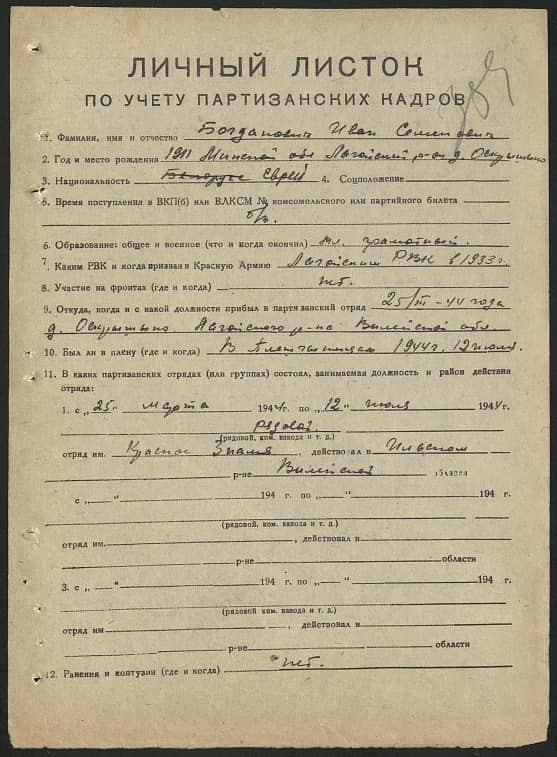 ЛИЧНЫЙ ЛИСТОК
ПО УЧЕТУ ПАРТИЗАНСКИХ КАДРОВ
1. Фамилия, имя и отчество Богданович Иван Семенович
2. Год и место рождения 1911 Минской обл Логойский р-он д.
3. Национальность Белорус Еврей 4. Соцположение
5. Время поступления в ВКП(б) или ВЛКСМ № комсомольского или партийного билета
б/п.
6. Образование: общее и военное (что и когда окончил) мл. грамотный.
7. Каким РВК и когда призван в Красную Армию Логойским РВК в 1933 г.
8. Участие на фронтах (где и когда) нет.
9. Откуда, и с какой должности прибыл в партизанский отряд 25/III-44 года
д. Логойского р-на Вилейской обл.
10. Был ли в плену (где и когда) В 1944 г. 12 июля.
11. В каких партизанских отрядах (или группах) состоял, занимаемая должность и район действия
отряда:
1. с „25" марта 1944 г. по „12" июля 1944 г.
рядовой
(рядовой, ком. взвода и т. д.)
отряд им. Красное Знамя, действовал в Ильском
р-не Вилейской области
с „ " 194 г. по „ " 194 г.
(рядовой, ком. взвода и т. д.)
отряд им. , действовал в
р-не области
3. с „ " 194 г. по „ " 194 г.
(рядовой, ком. взвода и т. д.)
отряд им , действовал в
р-не области
12. Ранения и контузии (где и когда) нет.